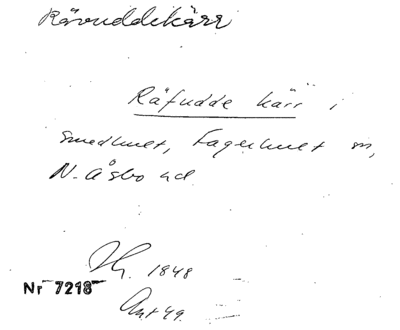 Rävuddekärr
Räfudde kärr i
Smedhult, Fagerhult sn,
N. Åsbo hd
Hr. 1848
Nr 7218
Ant 49.